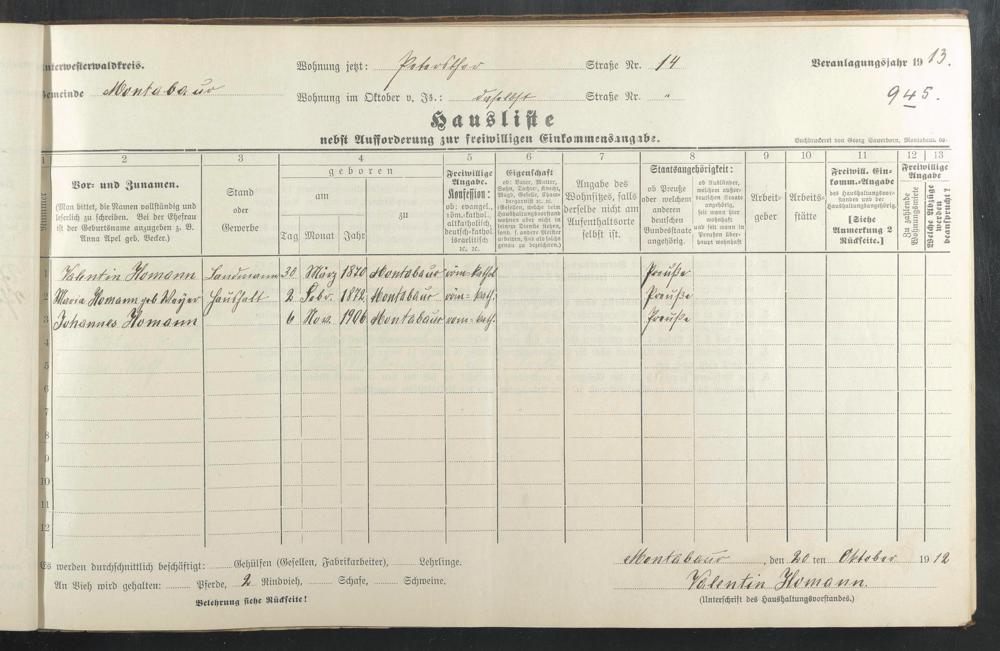 Unterwesterwaldkreis. Wohnung jetzt: Petersthor Straße Nr. 14 Veranlagungsjahr 1913.
Gemeinde Montabaur Wohnung im Oktober v. Js.: daselbst Straße Nr. " 945.
Hausliste
nebst Aufforderung zur freiwilligen Einkommensangabe.
Buchdruckerei von Georg Sauerborn, Montabaur.
1 2 3 4 5 6 7 8 9 10 11 12 13
Nummer
Vor- und Zunamen.
(Man bittet, die Namen vollständig und
leserlich zu schreiben. Bei der Ehefrau
ist der Geburtsname anzugeben z. B.
Anna Apel geb. Becker.)
Stand
oder
Gewerbe
geboren
am
zu
Tag Monat Jahr
Freiwillige
Angabe.
Konfession:
ob: evangel.,
röm.-kathol.,
altkatholisch,
deutsch-kathol.
israelitisch
ꝛc. ꝛc.
Eigenschaft
ob: Vater, Mutter,
Sohn, Tochter, Knecht,
Magd, Geselle, Cham-
bergarnist ꝛc. ꝛc.
Angabe des
Wohnsitzes, falls
derselbe nicht am
Aufenthaltsorte
selbst ist.
Staatsangehörigkeit:
ob Preuße
oder welchem
anderen
deutschen
Bundesstaate
angehörig.
ob Ausländer,
welchem außer-
deutschen Staate
angehörig,
seit wann hier
wohnhaft
und seit wann in
Preußen über-
haupt wohnhaft
Arbeit-
geber
Arbeits-
stätte
Freiwill. Ein-
komm.-Angabe
des Haushaltungsvor-
standes und der
Haushaltungsangehörig.
[Siehe
Anmerkung 2
Rückseite.]
Freiwillige
Angabe
Zu zahlende
Wohnungsmiete
Welche Abzüge
werden
beansprucht?
1 Valentin Homann Landmann 30 März 1870 Montabaur röm-kathol. Preuße
2 Maria Homann geb Weyer Haushalt 2 Febr. 1872 Montabaur röm-kath. Preuße
3 Johannes Homann 6 Nov. 1906 Montabaur röm-kath. Preuße
4
5
6
7
8
9
10
11
12
Es werden durchschnittlich beschäftigt: Gehülfen (Gesellen, Fabrikarbeiter), Lehrlinge.
An Vieh wird gehalten: Pferde, 2 Rindvieh, Schafe, Schweine.
Belehrung siehe Rückseite!
Montabaur, den 20ten Oktober 1912
Valentin Homann.
(Unterschrift des Haushaltungsvorstandes.)